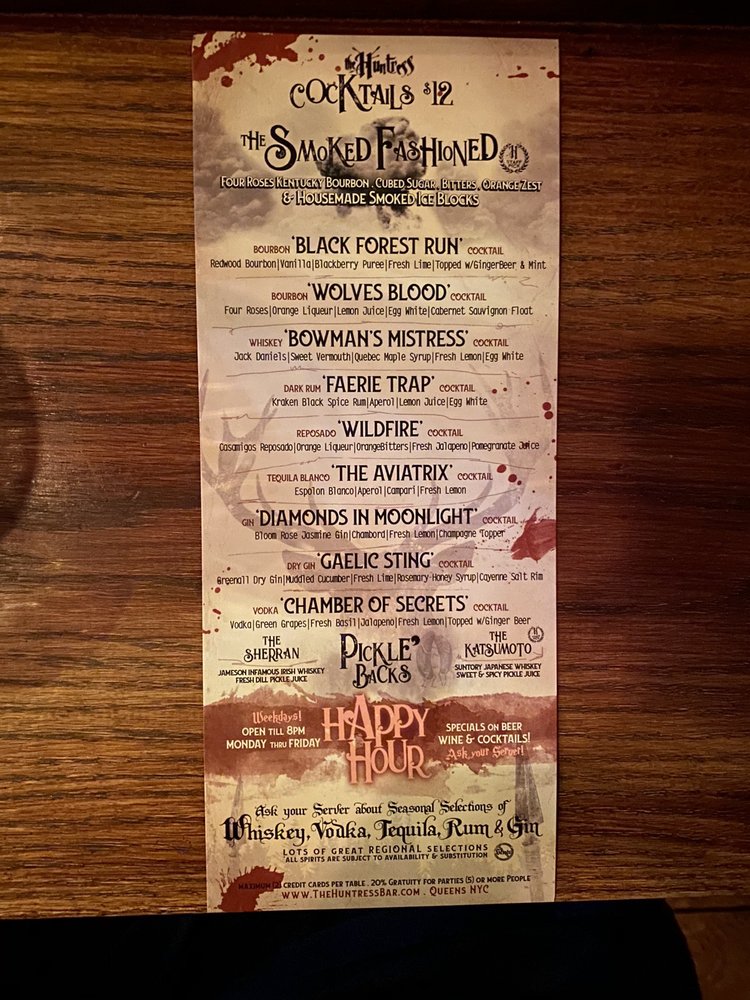 the Huntress
COCKTAILS $12
THE SMOKED FASHIONED
FOUR ROSES KENTUCKY BOURBON . CUBED SUGAR, BITTERS, ORANGE ZEST
& HOUSEMADE SMOKED ICE BLOCKS
BOURBON 'BLACK FOREST RUN' COCKTAIL
Redwood Bourbon|Vanilla|Blackberry Puree|Fresh Lime|Topped w/GingerBeer & Mint
BOURBON 'WOLVES BLOOD' COCKTAIL
Four Roses|Orange Liqueur|Lemon Juice|Egg White|Cabernet Sauvignon Float
WHISKEY 'BOWMAN'S MISTRESS' COCKTAIL
Jack Daniels|Sweet Vermouth|Quebec Maple Syrup|Fresh Lemon|Egg White
DARK RUM 'FAERIE TRAP' COCKTAIL
Kraken Black Spice Rum|Aperol|Lemon Juice|Egg White
REPOSADO 'WILDFIRE' COCKTAIL
Casamigos Reposado|Orange Liqueur|OrangeBitters|Fresh Jalapeno|Pomegranate Juice
TEQUILA BLANCO 'THE AVIATRIX' COCKTAIL
Espolon Blanco|Aperol|Campari|Fresh Lemon
GIN 'DIAMONDS IN MOONLIGHT' COCKTAIL
Bloom Rose Jasmine Gin|Chambord|Fresh Lemon|Champagne Topper
DRY GIN 'GAELIC STING' COCKTAIL
Greenall Dry Gin|Muddled Cucumber|Fresh Lime|Rosemary Honey Syrup|Cayenne Salt Rim
VODKA 'CHAMBER OF SECRETS' COCKTAIL
Vodka|Green Grapes|Fresh Basil|Jalapeno|Fresh Lemon|Topped w/Ginger Beer
PICKLE' BACKS
THE SHERRAN
JAMESON INFAMOUS IRISH WHISKEY
FRESH DILL PICKLE JUICE
THE KATSUMOTO
SUNTORY JAPANESE WHISKEY
SWEET & SPICY PICKLE JUICE
Weekdays!
OPEN TILL 8PM
MONDAY THRU FRIDAY
HAPPY HOUR
SPECIALS ON BEER
WINE & COCKTAILS!
Ask your Server!
Ask your Server about Seasonal Selections of
Whiskey, Vodka, Tequila, Rum & Gin
LOTS OF GREAT REGIONAL SELECTIONS
*ALL SPIRITS ARE SUBJECT TO AVAILABILITY & SUBSTITUTION
MAXIMUM (2) CREDIT CARDS PER TABLE . 20% GRATUITY FOR PARTIES (5) OR MORE PEOPLE
WWW.THEHUNTRESSBAR.COM . QUEENS NYC